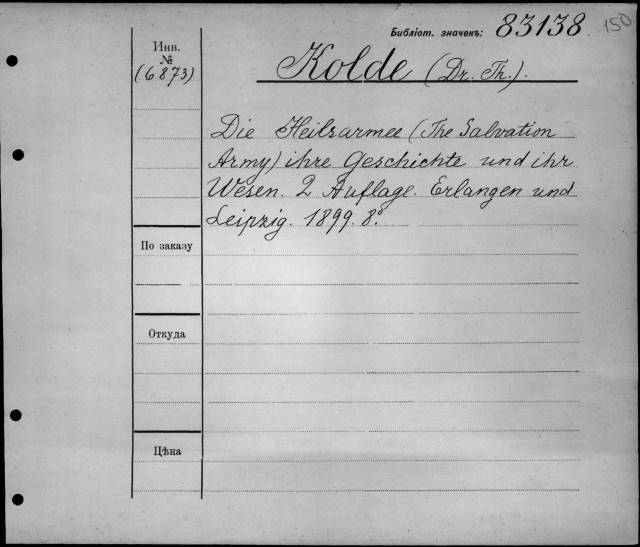 Библіот. значекъ: 83138. 150
Инв.
№
(6873)
Kolde (Dr. Th.).
Die Heilsarmee (The Salvation
Army) ihre Geschichte und ihr
Wesen. 2 Auflage. Erlangen und
Leipzig. 1899. 8º.
По заказу
Откуда
Цѣна